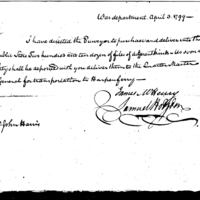 War department April 3. 1799 –
I have directed the Purveyor to purchase and deliver into the
Public Store Two hundred and ten dozen of files of different kinds – As soon as
they shall be deposited with you deliver them to the Quarter Master
General for transportation to Harpers ferry –
James McHenry
Samuel Hodgdon
John Harris